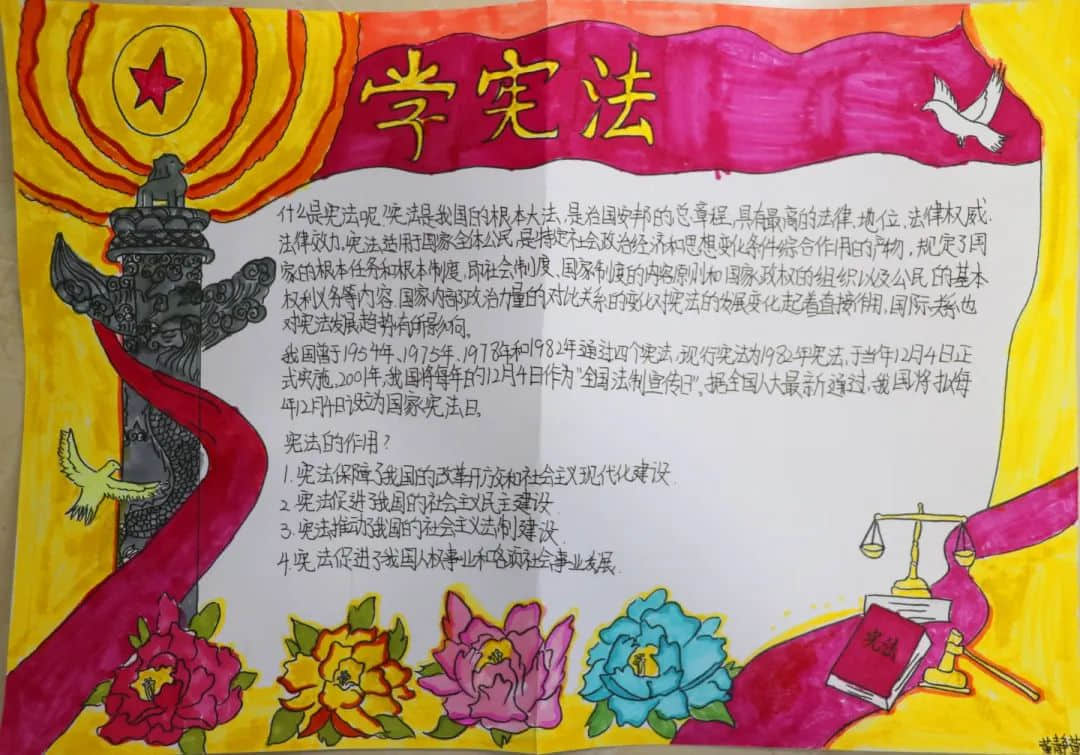 学宪法
什么是宪法呢?宪法是我国的根本大法,是治国安邦的总章程,具有最高的法律地位、法律权威、
法律效力。宪法适用于国家全体公民,是特定社会政治经济和思想变化条件综合作用的产物,规定了国
家的根本任务和根本制度,即社会制度、国家制度的内容原则和国家政权的组织以及公民的基本
权利义务等内容。国家内部政治力量的对比关系的变化对宪法的发展变化起着直接作用,国际关系也
对宪法发展趋势有所影响。
我国曾于1954年、1975年、1978年和1982年通过四个宪法,现行宪法为1982年宪法,于当年12月4日正
式实施。2001年,我国将每年的12月4日作为“全国法制宣传日”。据全国人大最新通过,我国将把每
年12月4日设为国家宪法日。
宪法的作用?
1.宪法保障了我国的改革开放和社会主义现代化建设.
2.宪法促进了我国的社会主义民主建设.
3.宪法推动了我国的社会主义法制建设.
4.宪法促进了我国人权事业和各项社会事业发展.
宪法
黄静